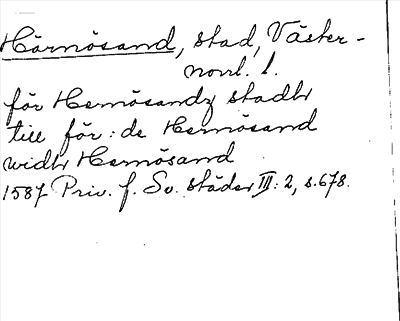 Härnösand, stad, Väster-
norrl. l.
för Hernösandz stadtr
till för:de Hernösand
widtr Hernösand
1587 Priv. f. Sv. städer III: 2, s. 678.